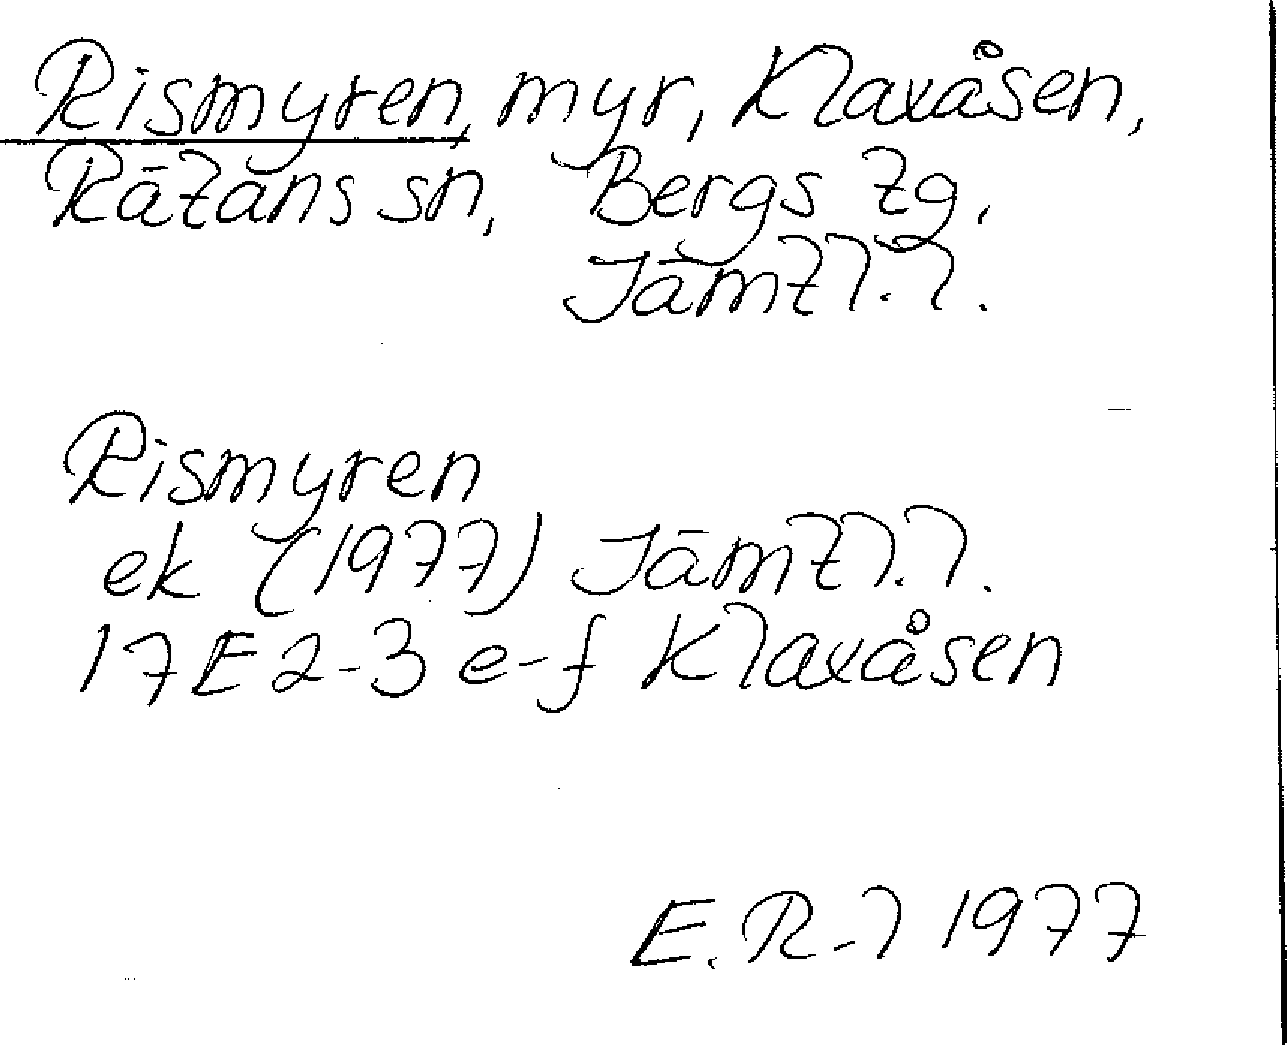 Rismyren, myr, Klaxåsen,
Rätans sn, Bergs tg.
Jämtl.l.
Rismyren
ek (1977) Jämtl.l.
17E2-3 e-f Klaxåsen
E.R-l 1977